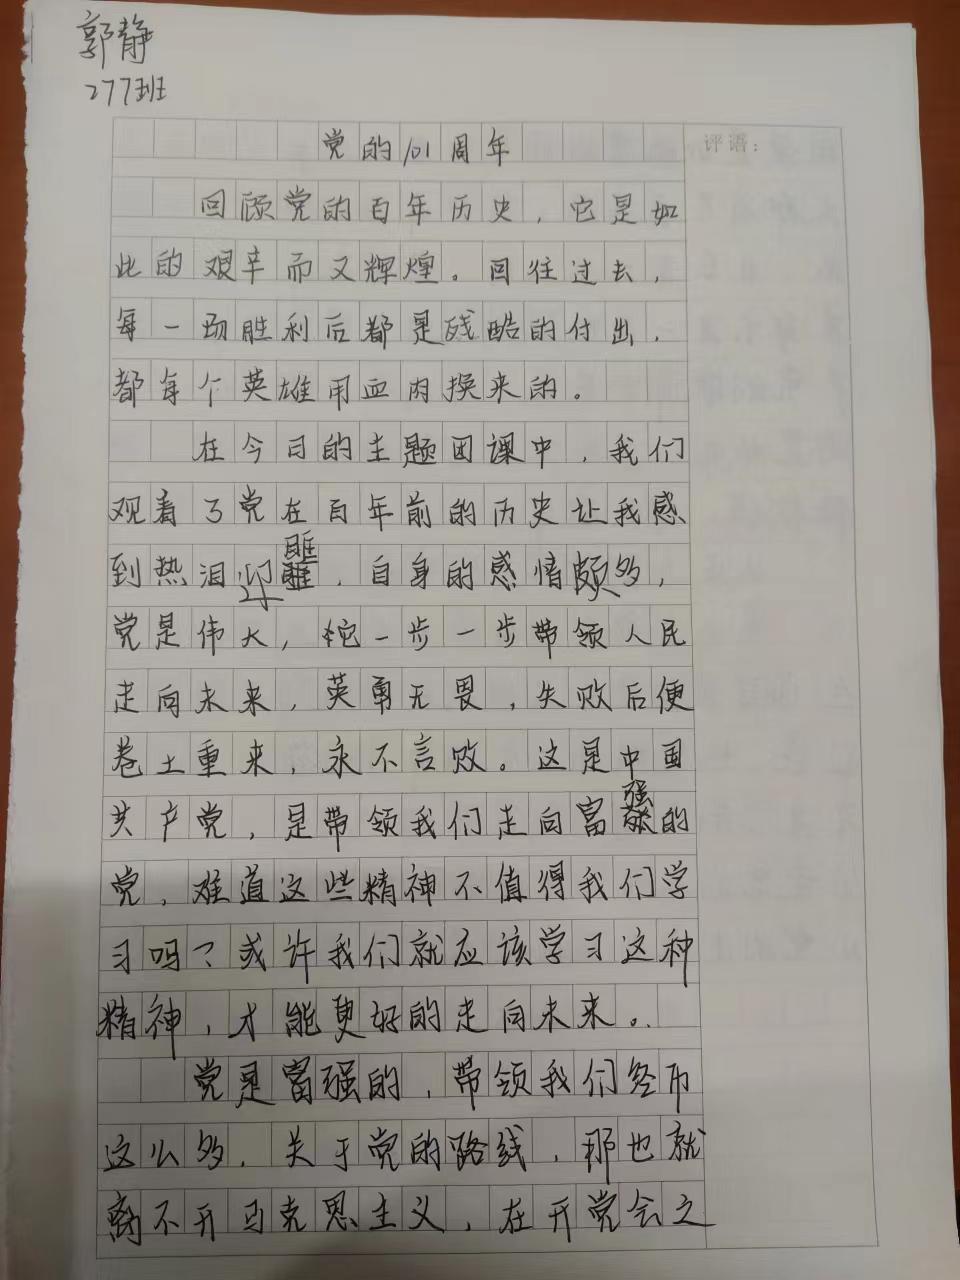 郭静
277班
党的101周年
评语：
回顾党的百年历史，它是如
此的艰辛而又辉煌。回往过去，
每一场胜利后都是残酷的付出，
都每个英雄用血肉换来的。
在今日的主题团课中，我们
观看了党在百年前的历史让我感
到热泪迎眶，自身的感情颇多，
党是伟大，它一步一步带领人民
走向未来，英勇无畏，失败后便
卷土重来，永不言败。这是中国
共产党，是带领我们走向富强的
党，难道这些精神不值得我们学
习吗？或许我们就应该学习这种
精神，才能更好的走向未来。
党是富强的，带领我们经历
这么多，关于党的路线，那也就
离不开马克思主义，在开党会之